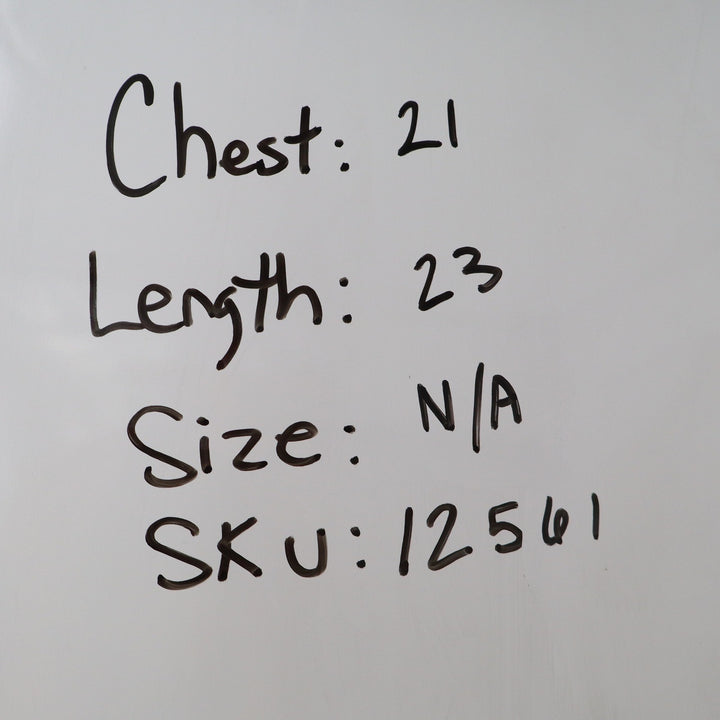 Chest: 21
Length: 23
Size: N/A
SKU: 12561